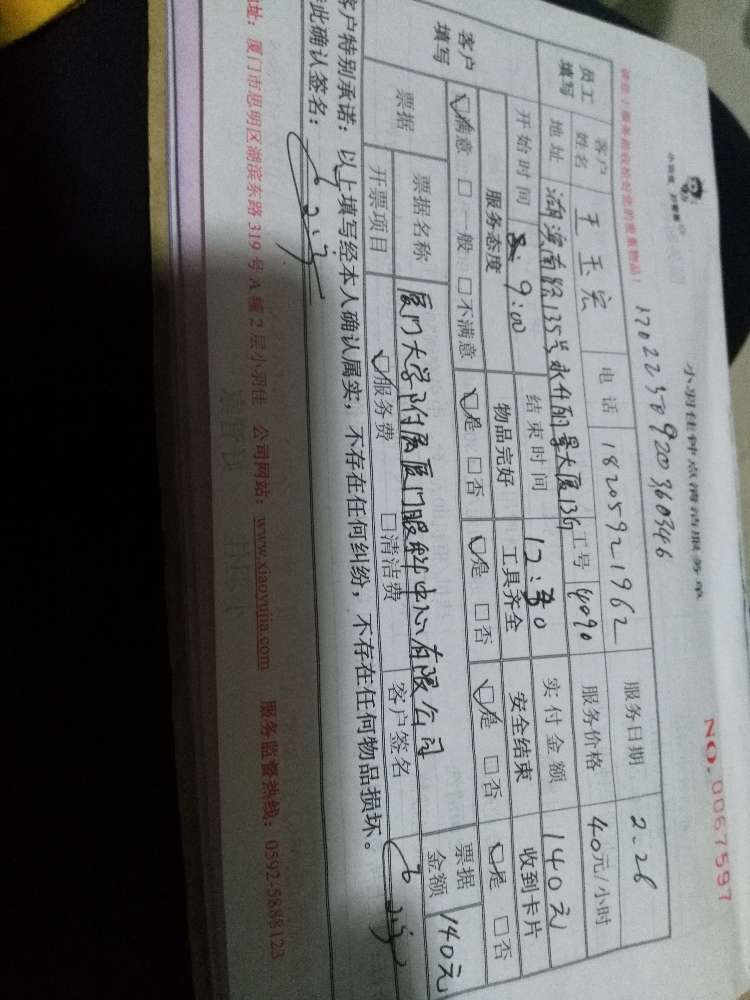 小羽佳 好管家
小羽佳钟点清洁服务单
NO. 0067597
17022309203 60346
请您于服务前收拾好您的贵重物品!
员工填写 客户姓名 王玉宏 电话 18205921962 服务日期 2.26
地址 湖滨南路135号永升丽景大厦13G 工号 4090 服务价格 40元/小时
开始时间 9:00 结束时间 12:30 实付金额 140元
客户填写 服务态度 物品完好 工具齐全 安全结束 收到卡片
☑满意 □一般 □不满意 ☑是 □否 ☑是 □否 ☑是 □否 ☑是 □否
票据 票据名称 厦门大学附属厦门眼科中心有限公司 票据金额 140元
开票项目 ☑服务费 □清洁费 客户签名
客户特别承诺:以上填写经本人确认属实,不存在任何纠纷,不存在任何物品损坏。
此确认签名:
地址:厦门市思明区湖滨东路319号A幢2层小羽佳 公司网站:www.xiaoyujia.com 服务监督热线:0592-5888123